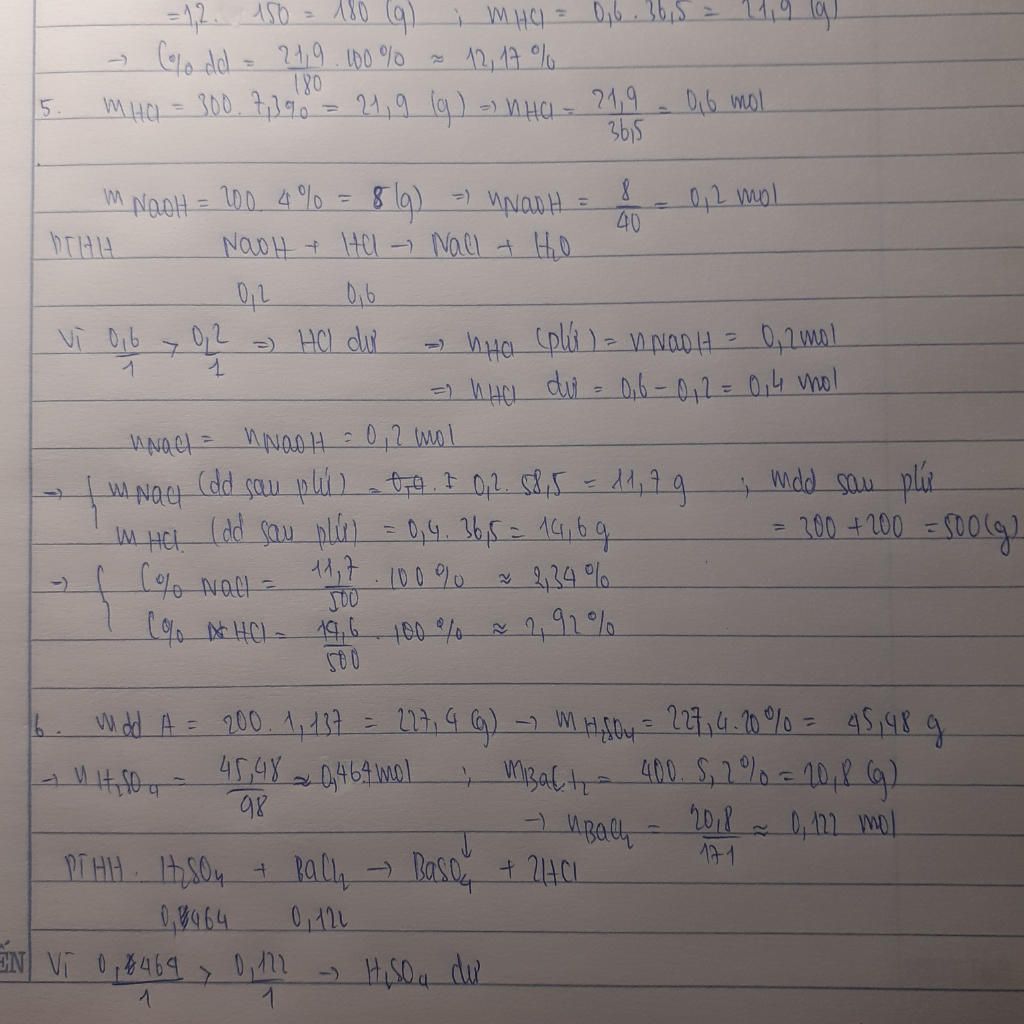 =1,2. 150 = 180 (g) ; mHCl = 0,6.36,5 = 21,9 (g)
→ C% dd = 21,9/180 . 100% ≈ 12,17%
5. mHCl = 300. 7,3% = 21,9 (g) → nHCl = 21,9/36,5 = 0,6 mol
mNaOH = 200 4% = 8 (g) ⇒ nNaOH = 8/40 = 0,2 mol
PTHH NaOH + HCl → NaCl + H2O
0,2 0,6
Vì 0,6/1 > 0,2/1 ⇒ HCl dư ⇒ nHCl (pứ) = nNaOH = 0,2mol
⇒ nHCl dư = 0,6 - 0,2 = 0,4 mol
nNaCl = nNaOH = 0,2 mol
→ { mNaCl (dd sau pứ) = 0,2. 58,5 = 11,7 g ; mdd sau pứ
mHCl (dd sau pứ) = 0,4. 36,5 = 14,6 g = 300 + 200 = 500(g)
→ { C% NaCl = 11,7/500 . 100% ≈ 2,34%
C% HCl = 14,6/500 . 100% ≈ 2,92%
6. mdd A = 200. 1,137 = 227,4 (g) → mH2SO4 = 227,4.20% = 45,48 g
→ nH2SO4 = 45,48/98 ≈ 0,464mol ; mBaCl2 = 400. 5,2% = 20,8 (g)
→ nBaCl2 = 20,8/171 ≈ 0,122 mol
PTHH. H2SO4 + BaCl2 → BaSO4↓ + 2HCl
0,464 0,122
ẾN Vì 0,464/1 > 0,122/1 → H2SO4 dư